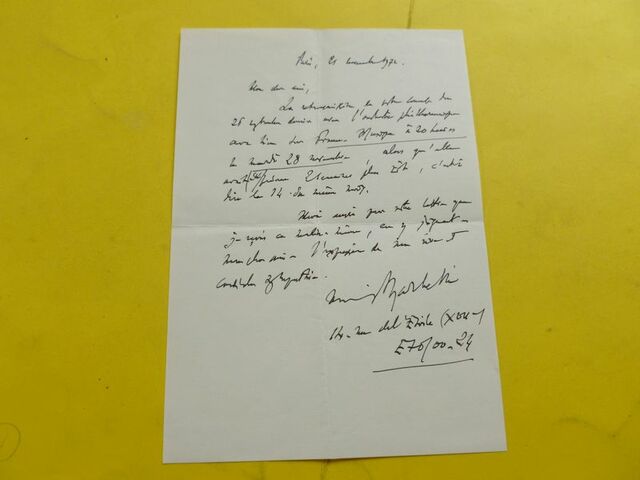 Paris, 21 novembre 1972.
Mon cher ami,
La retransmission de votre concert du
26 septembre dernier avec l'orchestre philharmonique
aura lieu sur France Musique à 20 heures
le mardi 28 novembre alors qu'elle
avait été prévue 2 semaines plus tôt, c'est à
dire le 14 du même mois.
Merci aussi pour votre lettre que
je reçois ce matin même, en y joignant
mon cher ami l'expression de mon
cordiale sympathie.
rue de l'Étoile (XVII
É76/00-24